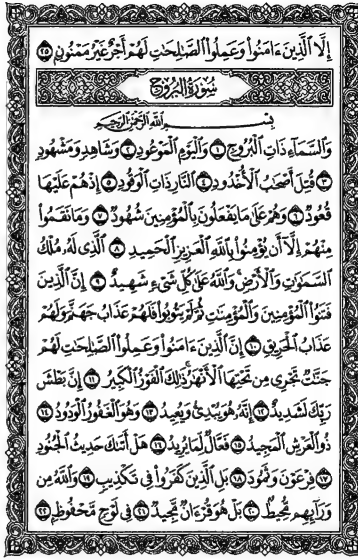 إِلَّا ٱلَّذِينَ ءَامَنُوا۟ وَعَمِلُوا۟ ٱلصَّـٰلِحَـٰتِ لَهُمْ أَجْرٌ غَيْرُ مَمْنُونٍ ٢٥
سُورَةُ البُرُوجِ
بِسْمِ ٱللَّهِ ٱلرَّحْمَـٰنِ ٱلرَّحِيمِ
وَٱلسَّمَآءِ ذَاتِ ٱلْبُرُوجِ ١ وَٱلْيَوْمِ ٱلْمَوْعُودِ ٢ وَشَاهِدٍ وَمَشْهُودٍ
٣ قُتِلَ أَصْحَـٰبُ ٱلْأُخْدُودِ ٤ ٱلنَّارِ ذَاتِ ٱلْوَقُودِ ٥ إِذْ هُمْ عَلَيْهَا
قُعُودٌ ٦ وَهُمْ عَلَىٰ مَا يَفْعَلُونَ بِٱلْمُؤْمِنِينَ شُهُودٌ ٧ وَمَا نَقَمُوا۟
مِنْهُمْ إِلَّآ أَن يُؤْمِنُوا۟ بِٱللَّهِ ٱلْعَزِيزِ ٱلْحَمِيدِ ٨ ٱلَّذِى لَهُۥ مُلْكُ
ٱلسَّمَـٰوَٰتِ وَٱلْأَرْضِ وَٱللَّهُ عَلَىٰ كُلِّ شَىْءٍ شَهِيدٌ ٩ إِنَّ ٱلَّذِينَ
فَتَنُوا۟ ٱلْمُؤْمِنِينَ وَٱلْمُؤْمِنَـٰتِ ثُمَّ لَمْ يَتُوبُوا۟ فَلَهُمْ عَذَابُ جَهَنَّمَ وَلَهُمْ
عَذَابُ ٱلْحَرِيقِ ١٠ إِنَّ ٱلَّذِينَ ءَامَنُوا۟ وَعَمِلُوا۟ ٱلصَّـٰلِحَـٰتِ لَهُمْ
جَنَّـٰتٌ تَجْرِى مِن تَحْتِهَا ٱلْأَنْهَـٰرُ ذَٰلِكَ ٱلْفَوْزُ ٱلْكَبِيرُ ١١ إِنَّ بَطْشَ
رَبِّكَ لَشَدِيدٌ ١٢ إِنَّهُۥ هُوَ يُبْدِئُ وَيُعِيدُ ١٣ وَهُوَ ٱلْغَفُورُ ٱلْوَدُودُ ١٤
ذُو ٱلْعَرْشِ ٱلْمَجِيدُ ١٥ فَعَّالٌ لِّمَا يُرِيدُ ١٦ هَلْ أَتَىٰكَ حَدِيثُ ٱلْجُنُودِ
١٧ فِرْعَوْنَ وَثَمُودَ ١٨ بَلِ ٱلَّذِينَ كَفَرُوا۟ فِى تَكْذِيبٍ ١٩ وَٱللَّهُ مِن
وَرَآئِهِم مُّحِيطٌۢ ٢٠ بَلْ هُوَ قُرْءَانٌ مَّجِيدٌ ٢١ فِى لَوْحٍ مَّحْفُوظٍۭ ٢٢